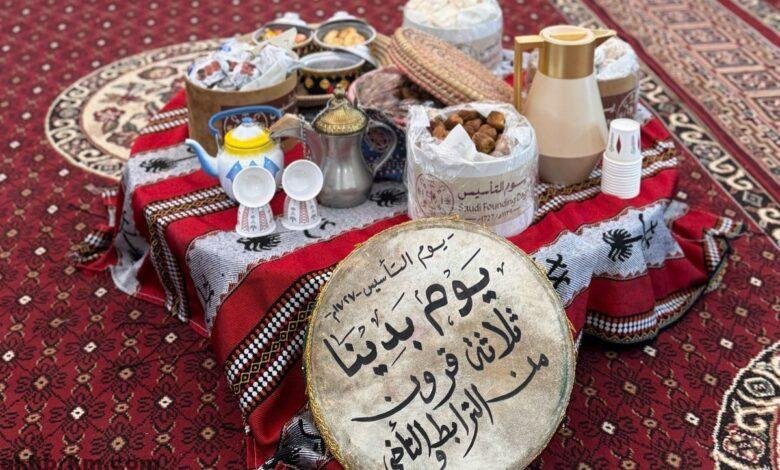 يوم التأسيس
Saudi Founding Day
يوم التأسيس - ١٧٢٧م
يوم بدينا
ثلاثة قرون
من الترابط والتآخي